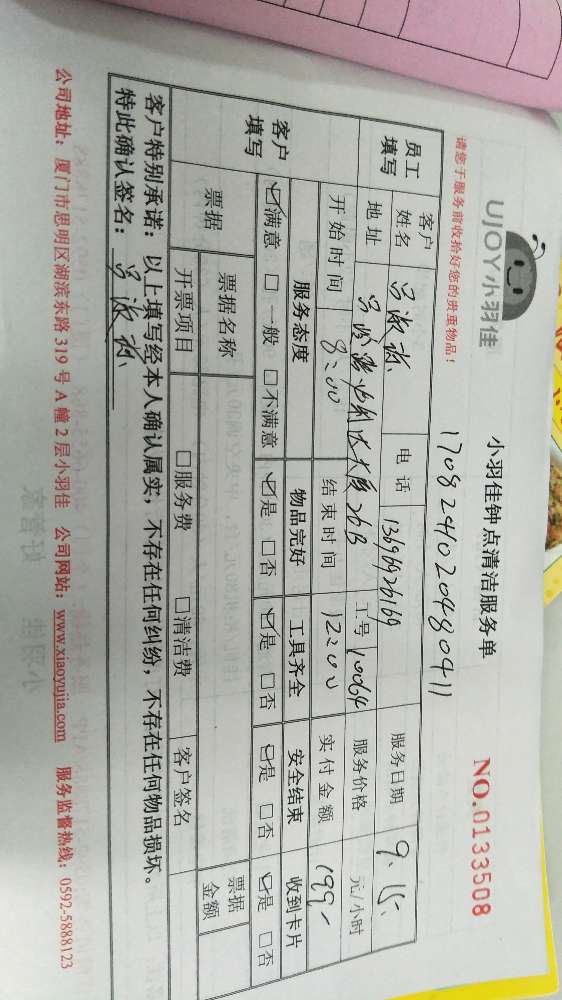 UJOY小羽佳
小羽佳钟点清洁服务单
NO.0133508
请您于服务前收拾好您的贵重物品！
170824020480411
员工填写
客户姓名 吕淑 电话 13696926169 服务日期 9.15.
地址 大厦26B 工号 10064 服务价格 元/小时
开始时间 8:00 结束时间 12:00 实付金额 199-
客户填写
服务态度 物品完好 工具齐全 安全结束 收到卡片
☑满意 □一般 □不满意 ☑是 □否 ☑是 □否 ☑是 □否 ☑是 □否
票据 票据名称 票据金额
开票项目 □服务费 □清洁费 客户签名
客户特别承诺：以上填写经本人确认属实，不存在任何纠纷，不存在任何物品损坏。
特此确认签名：吕淑
公司地址：厦门市思明区湖滨东路319号A幢2层小羽佳 公司网站：www.xiaoyujia.com 服务监督热线：0592-5888123